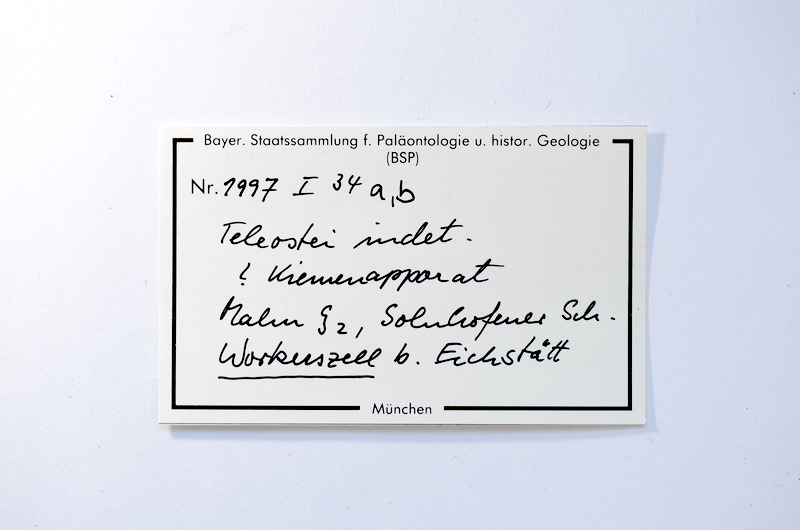 Bayer. Staatssammlung f. Paläontologie u. histor. Geologie
(BSP)
Nr. 1997 I 34 a,b
Teleostei indet.
? Kiemenapparat
Malm ζ2, Solnhofener Sch.
Workerszell b. Eichstätt
München